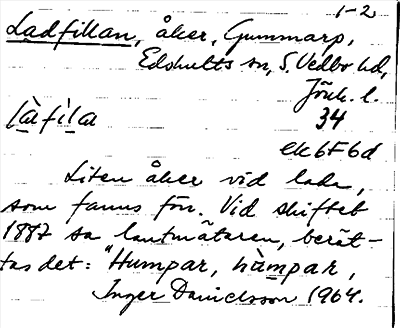 1-2
Ladfillan, åker, Gummarp,
Edshults sn, S. Vedbo hd,
Jönk. l.
34
làfìla
ek 6F6d
Liten åker vid lada,
som fanns förr. Vid skiftet
1887 sa lantmätaren, berät-
tas det: "Humpar, hampar,
Inger Danielsson 1964.